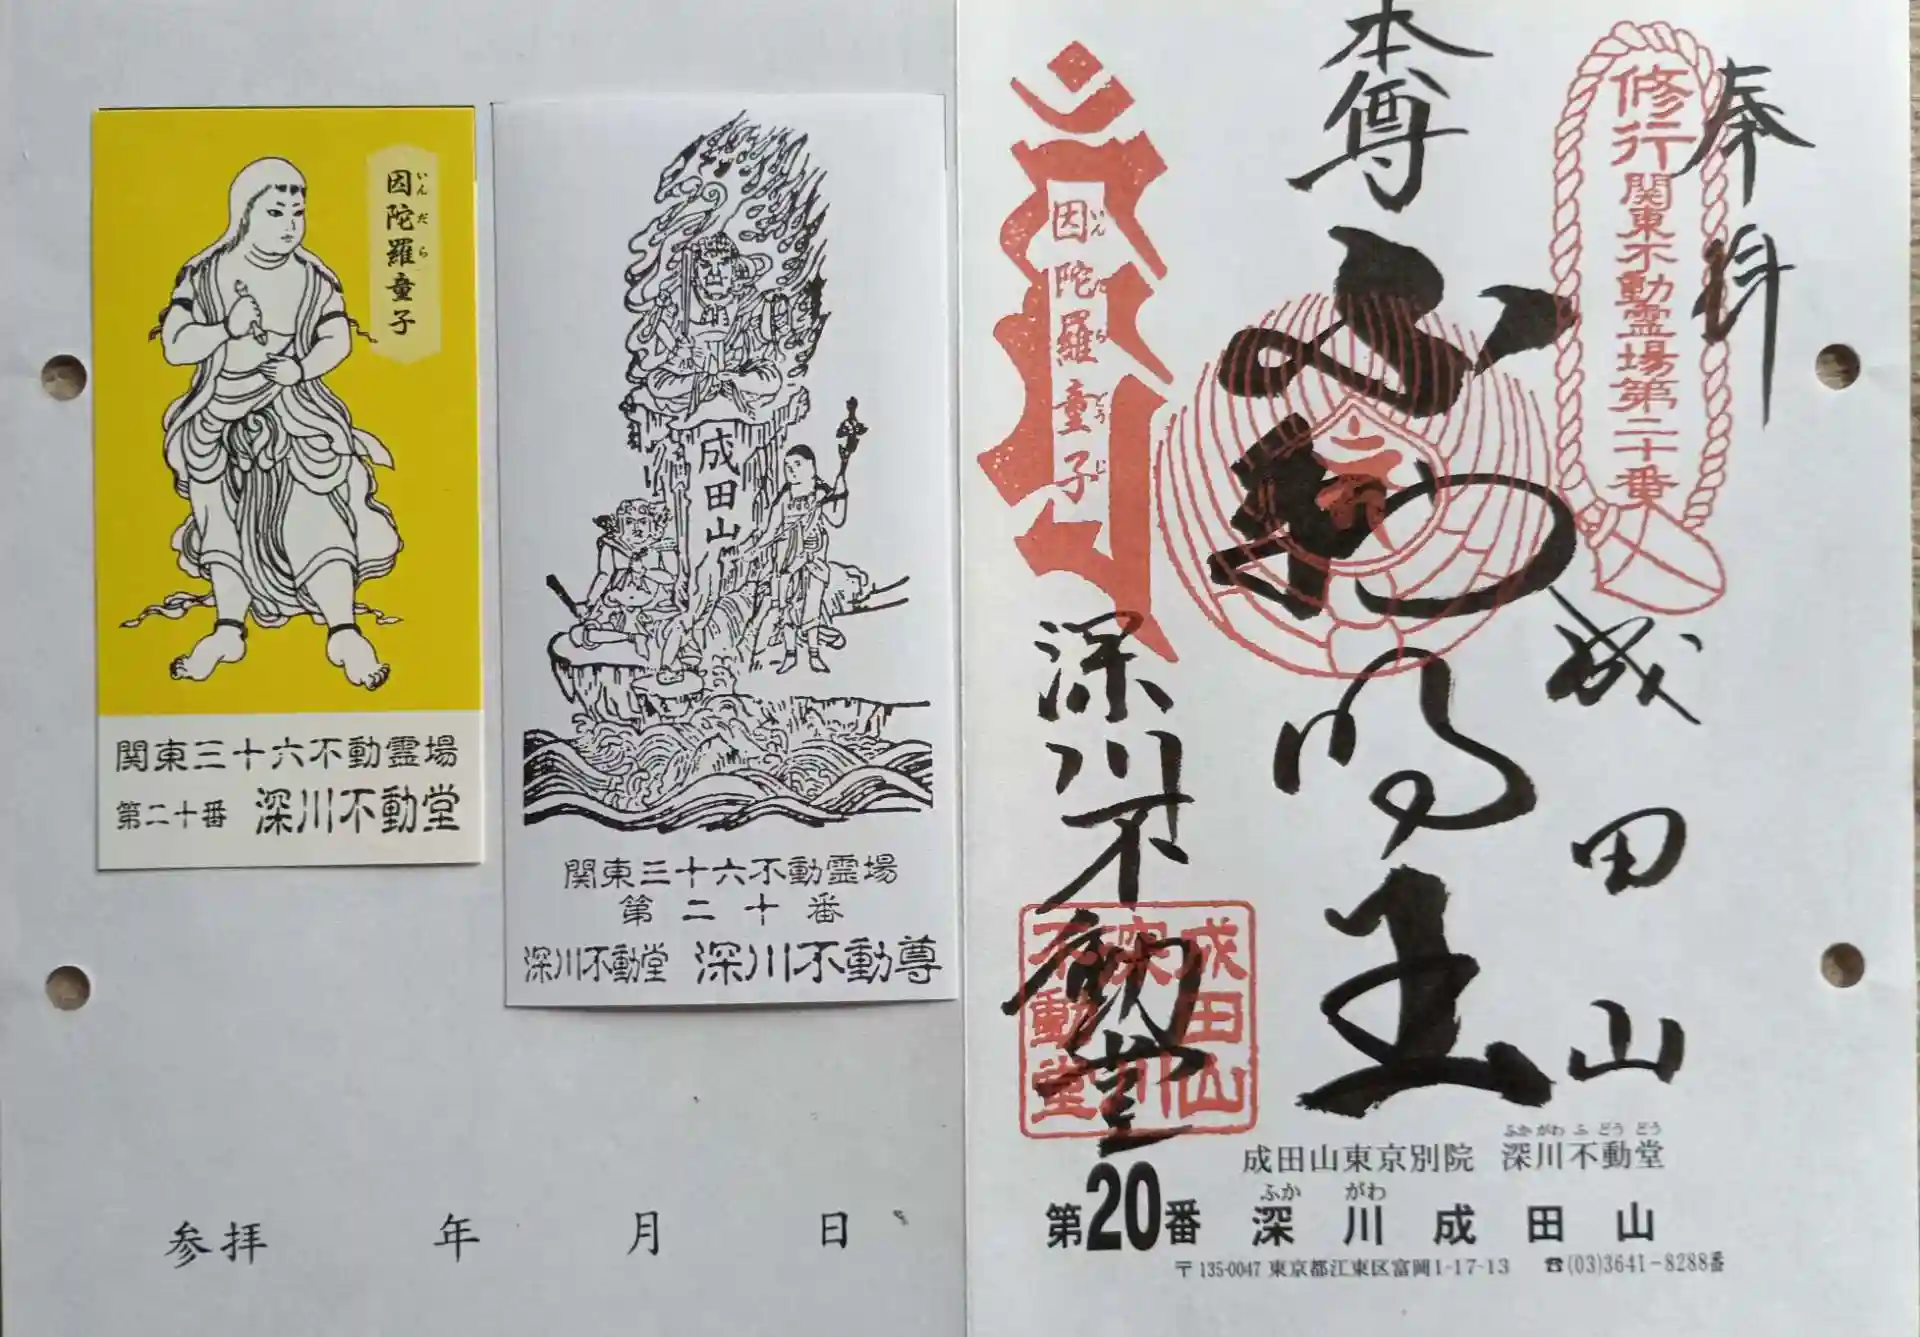 因陀羅童子
いんだら
関東三十六不動霊場
第二十番 深川不動堂
成田山
関東三十六不動霊場
第二十番
深川不動堂 深川不動尊
参拝 年 月 日
奉拝
成田山
修行関東不動霊場第二十番
本尊
不動明王
因陀羅童子
いんだらどうじ
深川不動堂
成田山
深川
不動堂
成田山東京別院 深川不動堂
ふかがわふどうどう
第20番 深川成田山
ふかがわ
〒135-0047 東京都江東区富岡1-17-13 ☎(03)3641-8288番